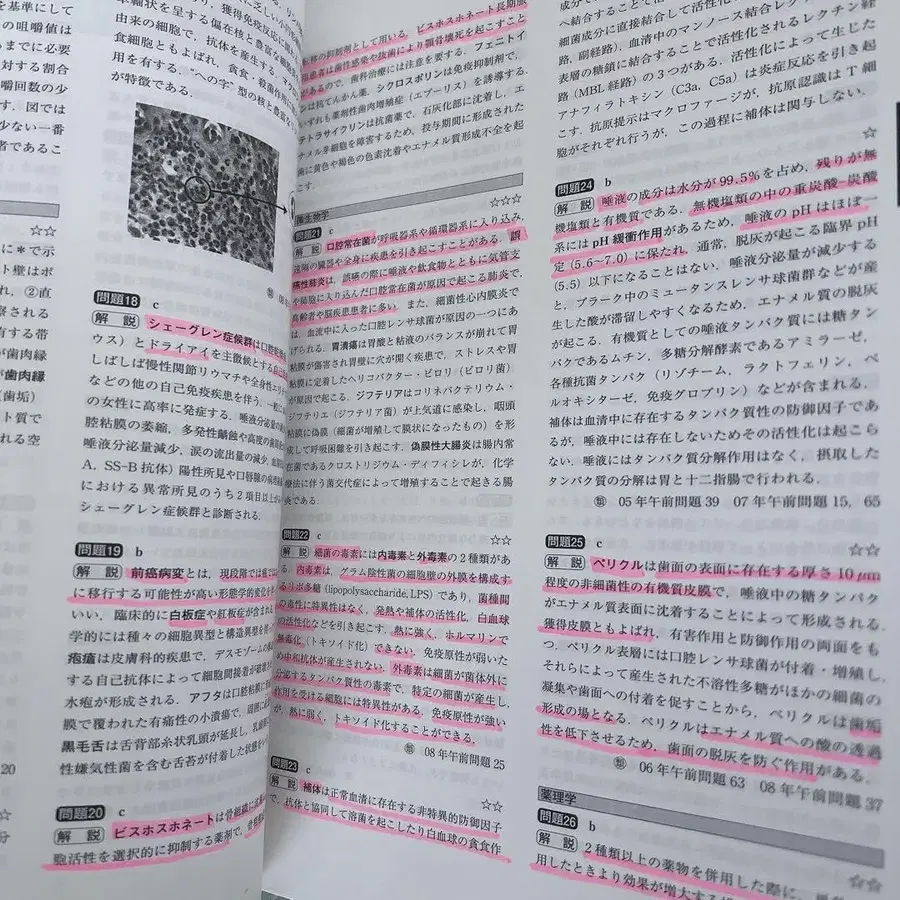 を基準にして
の咀嚼値は
までに必要
対する割合
嚼回数の少
図では
少ない一番
者であるこ
☆☆
に＊で示
ト壁はボ
れ，②直
察される
有する帯
が歯肉縁
歯肉縁
（歯垢）
ト質で
れる空
20
由来の細胞で，抗体を産生する．
食細胞ともよばれ，貪食・殺菌作用
用を有する．“へ の字”型の核と豊富な
が特徴である．
問題18 c
解 説 シェーグレン症候群は口腔乾燥
ウス）とドライアイを主徴とする自己
しばしば慢性関節リウマチや全身性エリ
などの他の自己免疫疾患を伴う．一般に
の女性に高率に発症する．唾液分泌量の
腔粘膜の萎縮，多発性齲蝕や高度の歯
唾液分泌量減少，涙の流出量の減少，血
A，SS-B 抗体）陽性所見や口唇腺の病
における異常所見のうち2項目以上が
シェーグレン症候群と診断される．
問題19 b
解 説 前癌病変とは，現段階では癌では
に移行する可能性が高い形態学的変化を
いい，臨床的に白板症や紅板症が含まれ
学的には種々の細胞異型と構造異型を
疱瘡は皮膚科的疾患で，デスモゾームの
する自己抗体によって細胞間接着が破壊
水疱が形成される．アフタは口腔粘膜に
膜で覆われた有痛性の小潰瘍で，周囲に
黒毛舌は舌背部糸状乳頭が延長し，乳頭
性嫌気性菌を含む舌苔が付着した状態を
問題20 c
解 説 ビスホスホネートは骨組織に
胞活性を選択的に抑制する薬剤で，骨
転移の抑制剤として用いる．ビスホスホネート長期服
用患者は歯性感染や抜歯により顎骨壊死を起こすこと
があるので，歯科治療には注意を要する．フェニトイ
ンは抗てんかん薬，シクロスポリンは免疫抑制剤で，
いずれも薬剤性歯肉増殖症（エプーリス）を誘導する．
テトラサイクリンは抗菌薬で，石灰化部に沈着し，エ
ナメル芽細胞を障害するため，投与期間に形成された
歯に黄色や褐色の色素沈着やエナメル質形成不全を起
こす．
微生物学
☆☆☆
問題21 c
解 説 口腔常在菌が呼吸器系や循環器系に入り込み，
遠隔の臓器や全身に疾患を引き起こすことがある．誤
嚥性肺炎は，誤嚥の際に唾液や飲食物とともに気管支
や肺胞に入り込んだ口腔常在菌が原因で起こる肺炎で，
高齢者や脳疾患患者に多い．また，細菌性心内膜炎で
は，血流中に入った口腔レンサ球菌が原因の一つにあ
げられる．胃潰瘍は胃酸と粘液のバランスが崩れて胃
粘膜が傷害され胃壁に穴が開く疾患で，ストレスや胃
粘膜に定着したヘリコバクター・ピロリ（ピロリ菌）
が原因で起こる．ジフテリアはコリネバクテリウム・
ジフテリエ（ジフテリア菌）が上気道に感染し，咽頭
粘膜に偽膜（細菌が増殖して膜状になったもの）を形
成して呼吸困難を引き起こす．偽膜性大腸炎は腸内常
在菌であるクロストリジウム・ディフィシレが，化学
療法に伴う菌交代症によって増殖することで起きる腸
炎である．
☆☆
問題22 c
解 説 細菌の毒素には内毒素と外毒素の2種類があ
る．内毒素は，グラム陰性菌の細胞壁の外膜を構成す
るリポ多糖（lipopolysaccharide, LPS）であり，菌種間
の毒性に特異性はなく，発熱や補体の活性化，白血球
の活性化などを引き起こす．熱に強く，ホルマリンで
無毒化（トキソイド化）できない．免疫原性が弱いた
め中和抗体が産生されない．外毒素は細菌が菌体外に
分泌するタンパク質性の毒素で，特定の細菌が産生し，
作用を受ける細胞には特異性がある．免疫原性が強い
が，熱に弱く，トキソイド化することができる．
類 08年午前問題 25
☆☆
問題23 c
解 説 補体は正常血清に存在する非特異的防御因子
で，抗体と協同して溶菌を起こしたり白血球の貪食作
へ結合することで活性化
細菌成分に直接結合して活性化
路，副経路），血清中のマンノース結合レクチ
表層の糖鎖に結合することで活性化するレクチン経
路（MBL 経路）の3つがある．活性化によって生じた
アナフィラトキシン（C3a，C5a）は炎症反応を引き起
こす．抗原提示はマクロファージが，抗原認識は T 細
胞がそれぞれ行うが，この過程に補体は関与しない．
☆
問題24 b
解 説 唾液の成分は水分が 99.5％を占め，残りが無
機塩類と有機質である．無機塩類の中の重炭酸-炭酸
系には pH 緩衝作用があるため，唾液の pH はほぼ一
定（5.6〜7.0）に保たれ，通常，脱灰が起こる臨界 pH
（5.5）以下になることはない．唾液分泌量が減少する
と，プラーク中のミュータンスレンサ球菌群などが産
生した酸が滞留しやすくなるため，エナメル質の脱灰
が起こる．有機質としての唾液タンパク質には糖タン
パクであるムチン，多糖分解酵素であるアミラーゼ，
各種抗菌タンパク（リゾチーム，ラクトフェリン，ペ
ルオキシターゼ，免疫グロブリン）などが含まれる．
補体は血清中に存在するタンパク質性の防御因子であ
るが，唾液中には存在しないためその活性化は起こら
ない．唾液にはタンパク質分解作用はなく，摂取した
タンパク質の分解は胃と十二指腸で行われる．
類 05年午前問題 39 07年午前問題 15，65
☆☆
問題25 c
解 説 ペリクルは歯面の表面に存在する厚さ 10 μm
程度の非細菌性の有機質皮膜で，唾液中の糖タンパク
がエナメル質表面に沈着することによって形成される．
獲得皮膜ともよばれ，有害作用と防御作用の両面をも
つ．ペリクル表層には口腔レンサ球菌が付着・増殖し，
それらによって産生された不溶性多糖がほかの細菌の
凝集や歯面への付着を促すことから，ペリクルは歯垢
形成の場となる．ペリクルはエナメル質への酸の透過
性を低下させるため，歯面の脱灰を防ぐ作用がある．
類 06年午前問題 63 08年午前問題 37
薬理学
☆☆
問題26 b
解 説 2種類以上の薬物を併用した際に，
用したときより効果が増大する